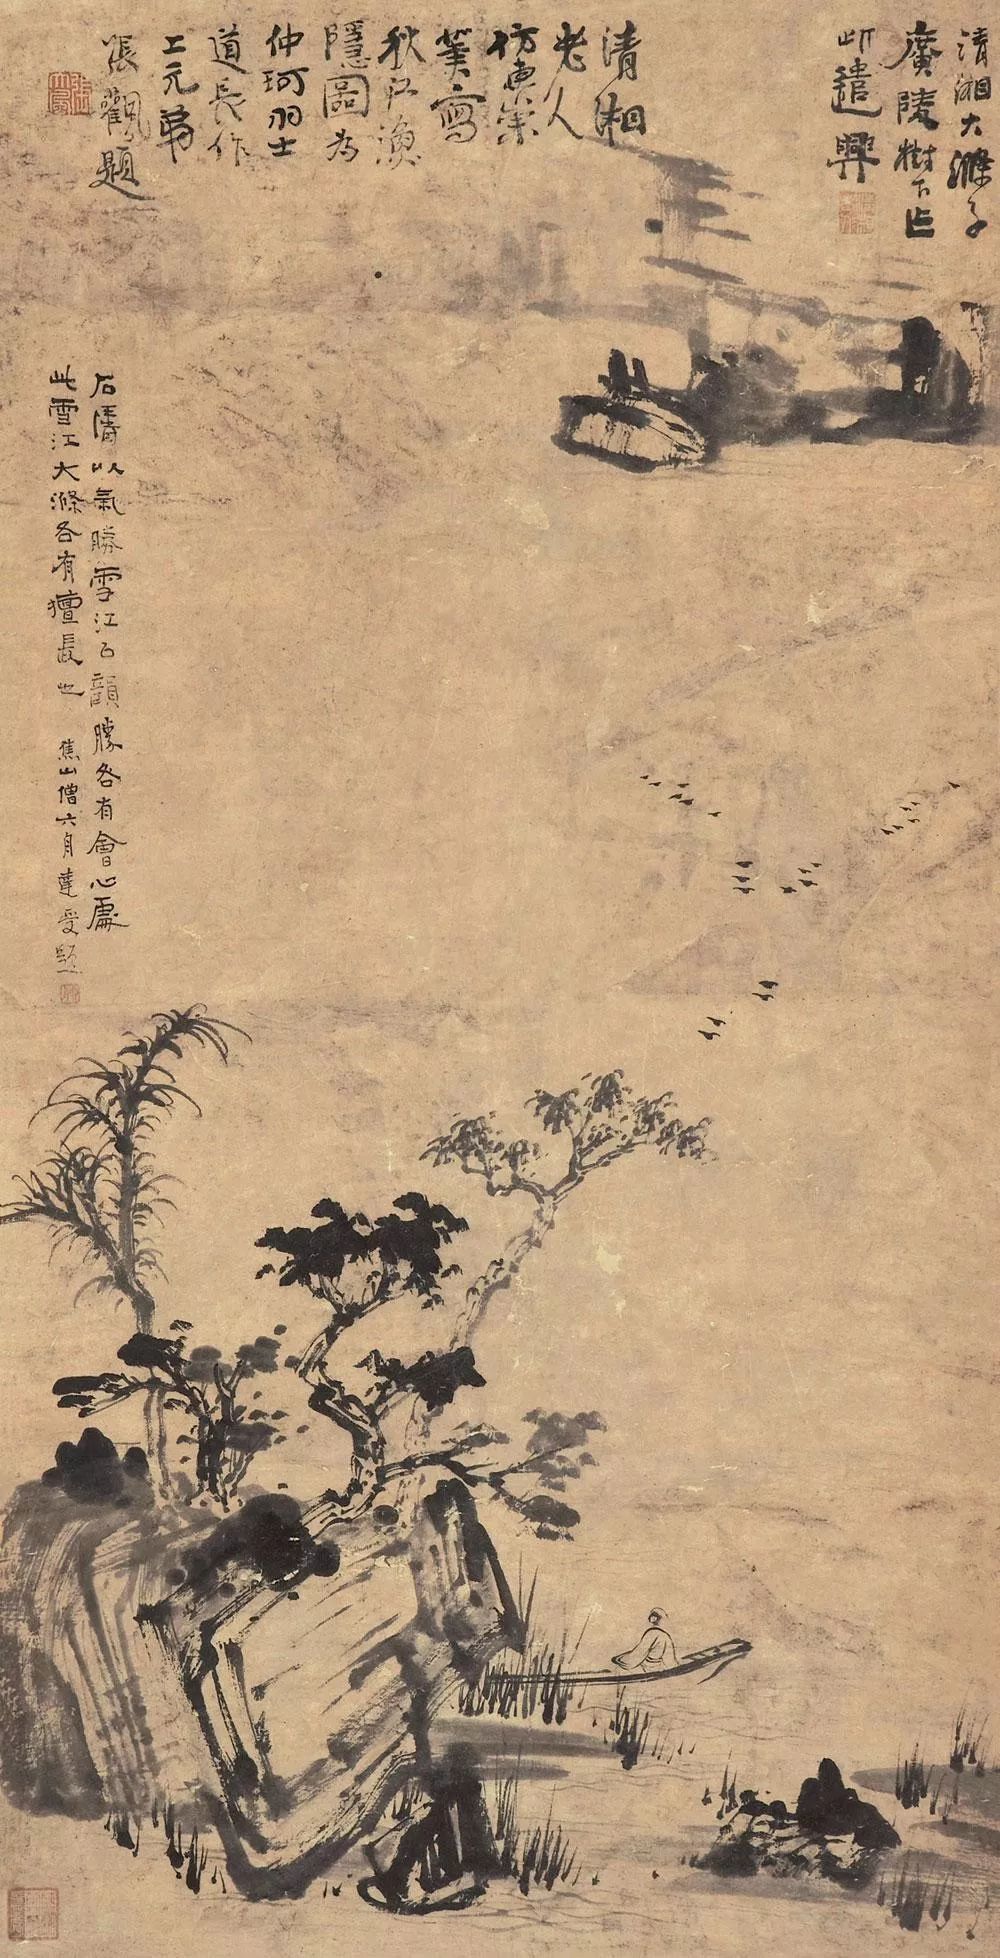 清湘大滌子
廣陵樹下作
此遣興
清湘
老人
仿惠崇
筆寫
秋江漁
隱圖為
仲珂羽士
道長作
上元弟
張觀題
石濤以氣勝雪江以韻勝各有會心處
此雪江大滌各有擅長也 焦山僧六舟達受題